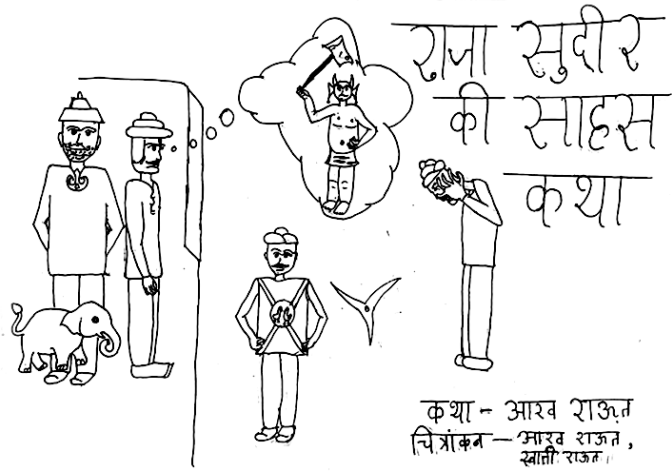 राजा सुदीर
की साहस
कथा
कथा - आरव राऊत
चित्रांकन - आरव राऊत,
स्वाती राऊत,